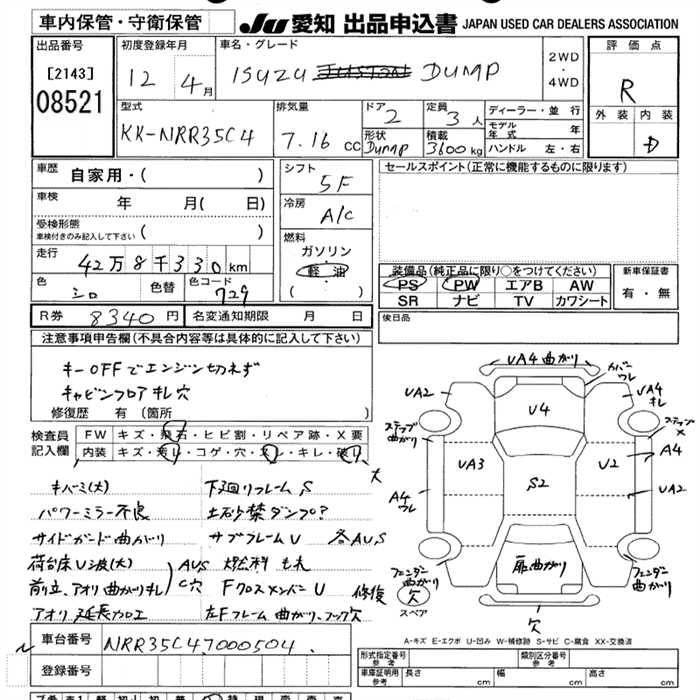 車内保管・守衛保管
JU 愛知 出品申込書 JAPAN USED CAR DEALERS ASSOCIATION
出品番号
[2143]
08521
初度登録年月
12 4月
車名・グレード
ISUZU DUMP
2WD
・
4WD
評価点
R
外装 内装
D
型式
KK-NRR35C4
排気量
7.16 cc
ドア
2
形状
Dump
定員
3人
積載
3600kg
ディーラー・並行
モデル年式 年
ハンドル 左・右
車歴
自家用・( )
車検
年 月( 日)
受検形態
車検付きのみ記入して下さい ( )
走行
42万8千330km
色
シロ
色替
色コード
729
シフト
5F
冷房
A/C
燃料
ガソリン
軽油
( )
セールスポイント(正常に機能するものに限ります)
装備品(純正品に限り○をつけてください)
PS PW エアB AW
SR ナビ TV カワシート
新車保証書
有・無
R券 8340円
名変通知期限 月 日
後日品
注意事項申告欄(不具合内容等は具体的に記入して下さい)
キーOFFでエンジン切れず
キャビンフロアキレ穴
修復歴 有(箇所 )
検査員
記入欄
FW キズ・飛石・ヒビ割・リペア跡・X要
内装 キズ・汚れ・コゲ・穴・スレ・キレ・破れ
大
キバミ(大) 下廻りフレームS
パワーミラー不良 土砂禁ダンプ?
サイドガード曲がり サブフレームU 各AUS
荷台床U波(大) AUS 燃料もれ
前立、アオリ曲がりキレ C穴 FクロスメンバーU 修復
アオリ延長加工 左Fフレーム曲がり、フック欠
車台番号
NRR35C47000504
登録番号
UA4曲がり
カバーワレ
UA2
U4
UA4キレ
ステップ曲がり
ステップX
UA3
S2
U2
A4
UA2
A4ワレ
扉曲がり
フェンダー曲がり
フェンダー曲がり
欠
スペア
欠
A-キズ E-エクボ U-凹み W-補修跡 S-サビ C-腐食 XX-交換済
形式指定番号
参考
類別区分番号
参考
車庫証明用
参考
長さ cm
幅 cm
高さ cm